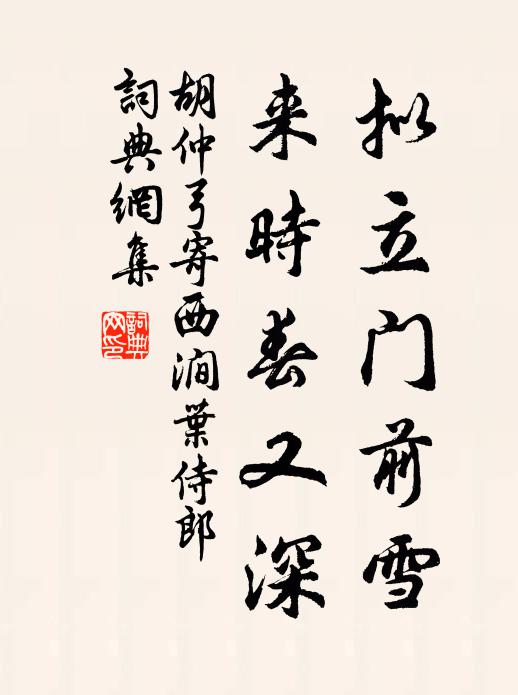 拟立门前雪
来時春又深
胡仲弓寄西澗葉侍郎
詞典網集
詞典网印